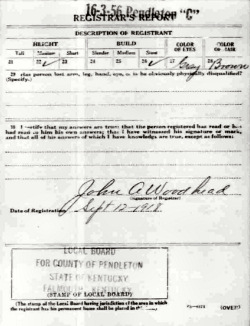 16-3-56 Pendleton "C"
REGISTRAR'S REPORT
DESCRIPTION OF REGISTRANT
HEIGHT BUILD COLOR OF EYES COLOR OF HAIR
Tall Medium Short Slender Medium Stout
21 22 ✓ 23 24 25 26 ✓ 27 Gray 28 Brown
29 Has person lost arm, leg, hand, eye, or is he obviously physically disqualified?
(Specify.)
30 I certify that my answers are true; that the person registered has read or has
had read to him his own answers; that I have witnessed his signature or mark,
and that all of his answers of which I have knowledge are true, except as follows:
John A Woodhead
(Signature of Registrar)
Date of Registration Sept 12 1918
LOCAL BOARD
FOR COUNTY OF PENDLETON
STATE OF KENTUCKY
FALMOUTH, KENTUCKY
(STAMP OF LOCAL BOARD)
(The stamp of the Local Board having jurisdiction of the area in which
the registrant has his permanent home shall be placed in this
(OVER)